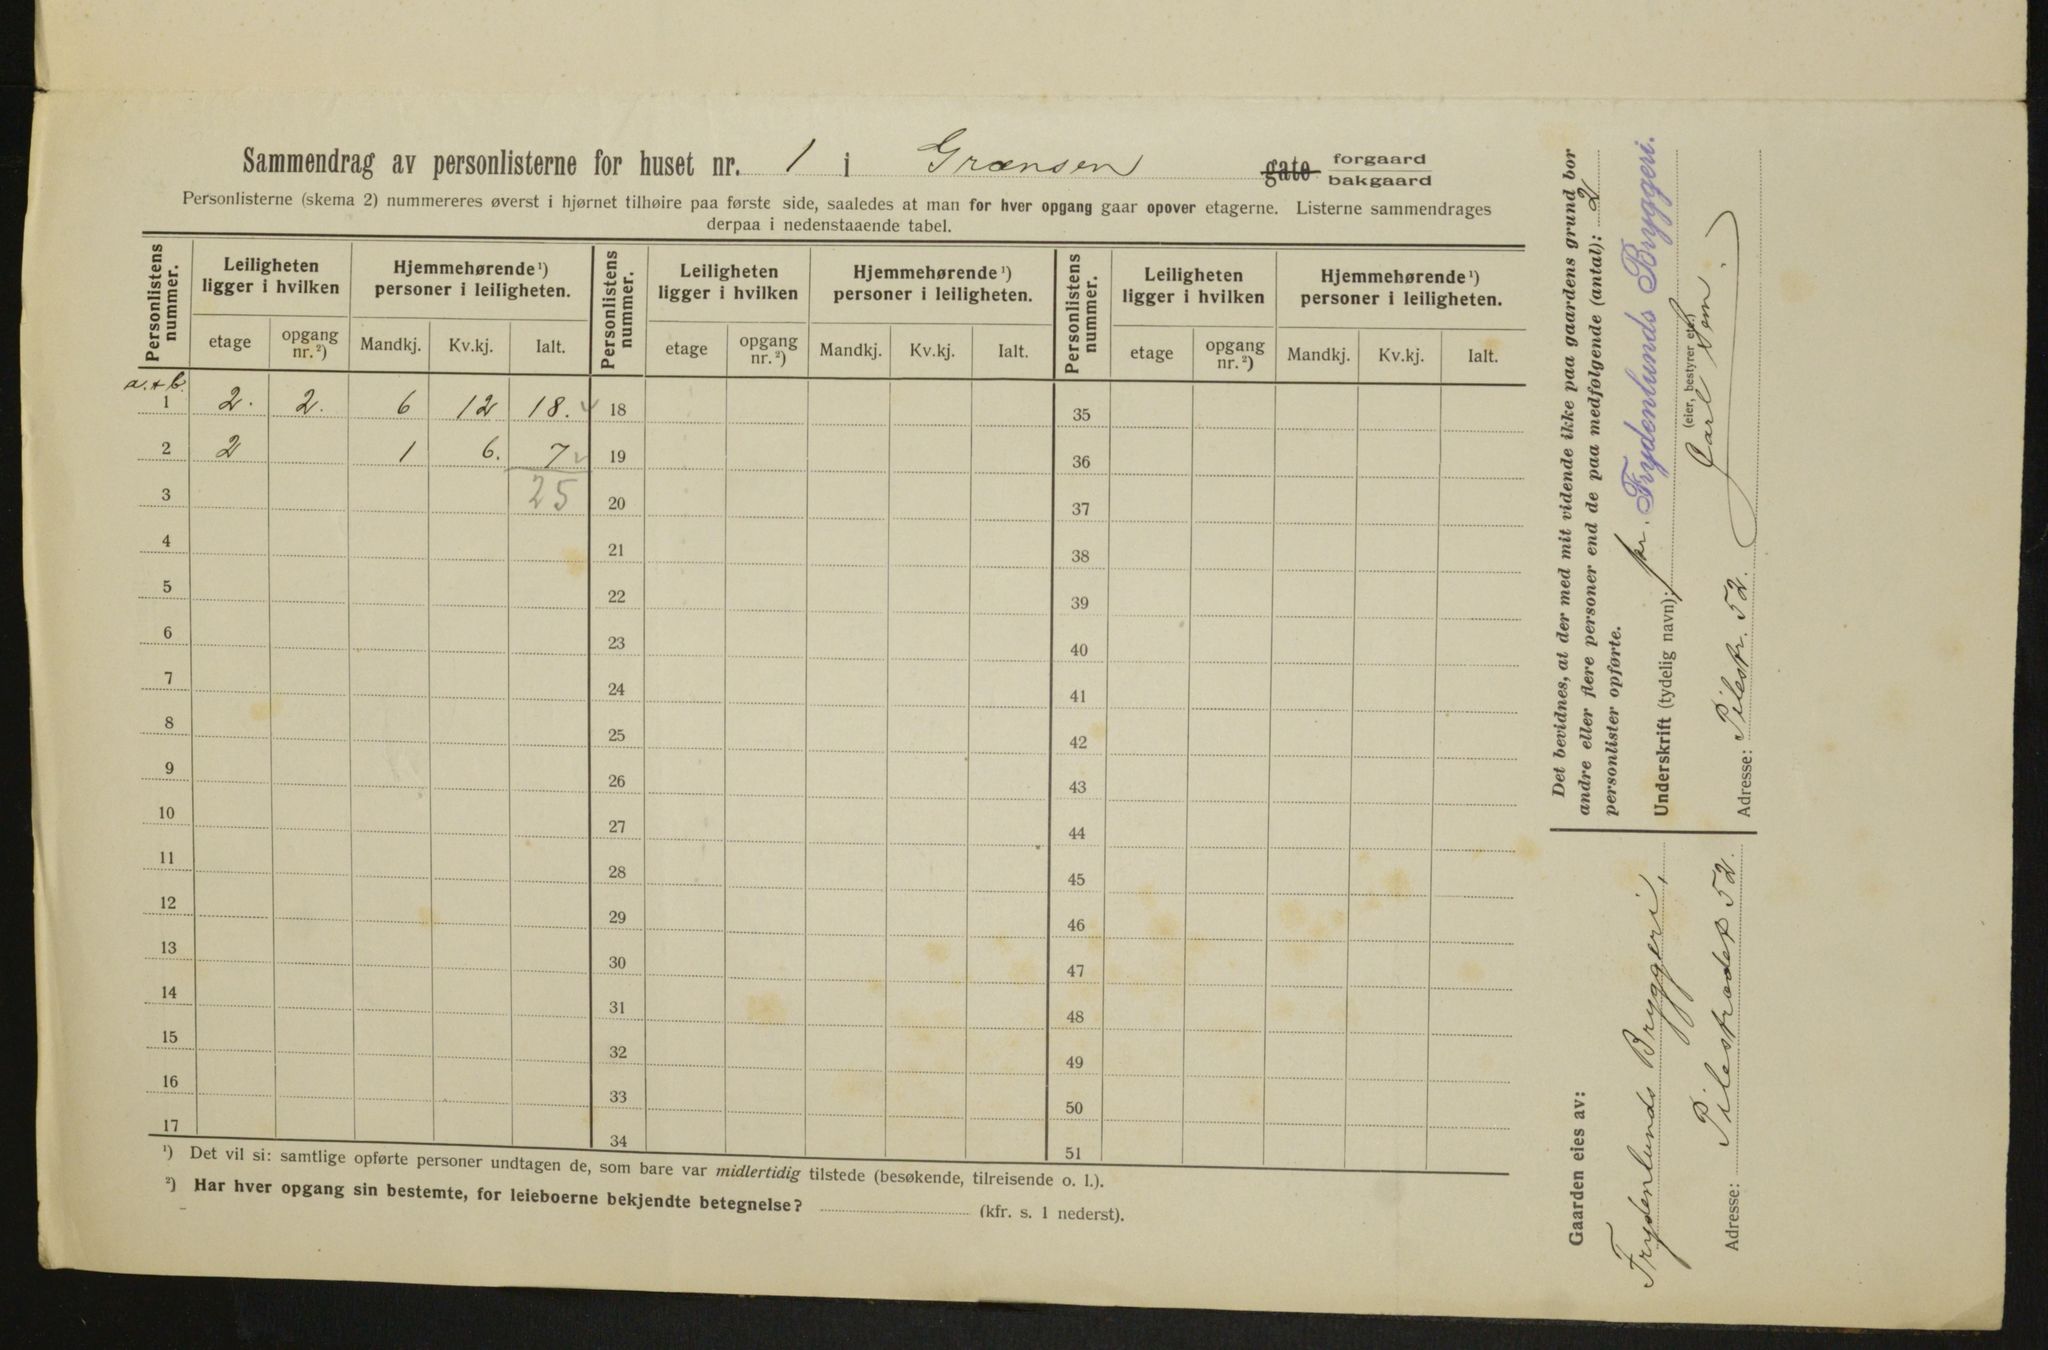 Sammendrag av personlisterne for huset nr. 1 i Grænsen gate forgaard bakgaard
Personlisterne (skema 2) nummereres øverst i hjørnet tilhøire paa første side, saaledes at man for hver opgang gaar opover etagerne. Listerne sammendrages
derpaa i nedenstaaende tabel.
Personlistens nummer. Leiligheten ligger i hvilken Hjemmehørende ¹) personer i leiligheten. Personlistens nummer. Leiligheten ligger i hvilken Hjemmehørende ¹) personer i leiligheten. Personlistens nummer. Leiligheten ligger i hvilken Hjemmehørende ¹) personer i leiligheten.
etage opgang nr. ²) Mandkj. Kv.kj. Ialt. etage opgang nr. ²) Mandkj. Kv.kj. Ialt. etage opgang nr. ²) Mandkj. Kv.kj. Ialt.
a. + b.
1 2. 2. 6 12 18. 18 35
2 2 1 6. 7 19 36
3 25 20 37
4 21 38
5 22 39
6 23 40
7 24 41
8 25 42
9 26 43
10 27 44
11 28 45
12 29 46
13 30 47
14 31 48
15 32 49
16 33 50
17 34 51
¹) Det vil si: samtlige opførte personer undtagen de, som bare var midlertidig tilstede (besøkende, tilreisende o. l.).
²) Har hver opgang sin bestemte, for leieboerne bekjendte betegnelse? (kfr. s. 1 nederst).
Gaarden eies av:
Frydenlunds Bryggeri,
Adresse: Pilestrædet 52.
Det bevidnes, at der med mit vidende ikke paa gaardens grund bor
andre eller flere personer end de paa medfølgende (antal): 2
personlister opførte.
pr. Frydenlunds Bryggeri.
Underskrift (tydelig navn):
(eier, bestyrer etc.)
Carl
Adresse: Pilestr. 52.